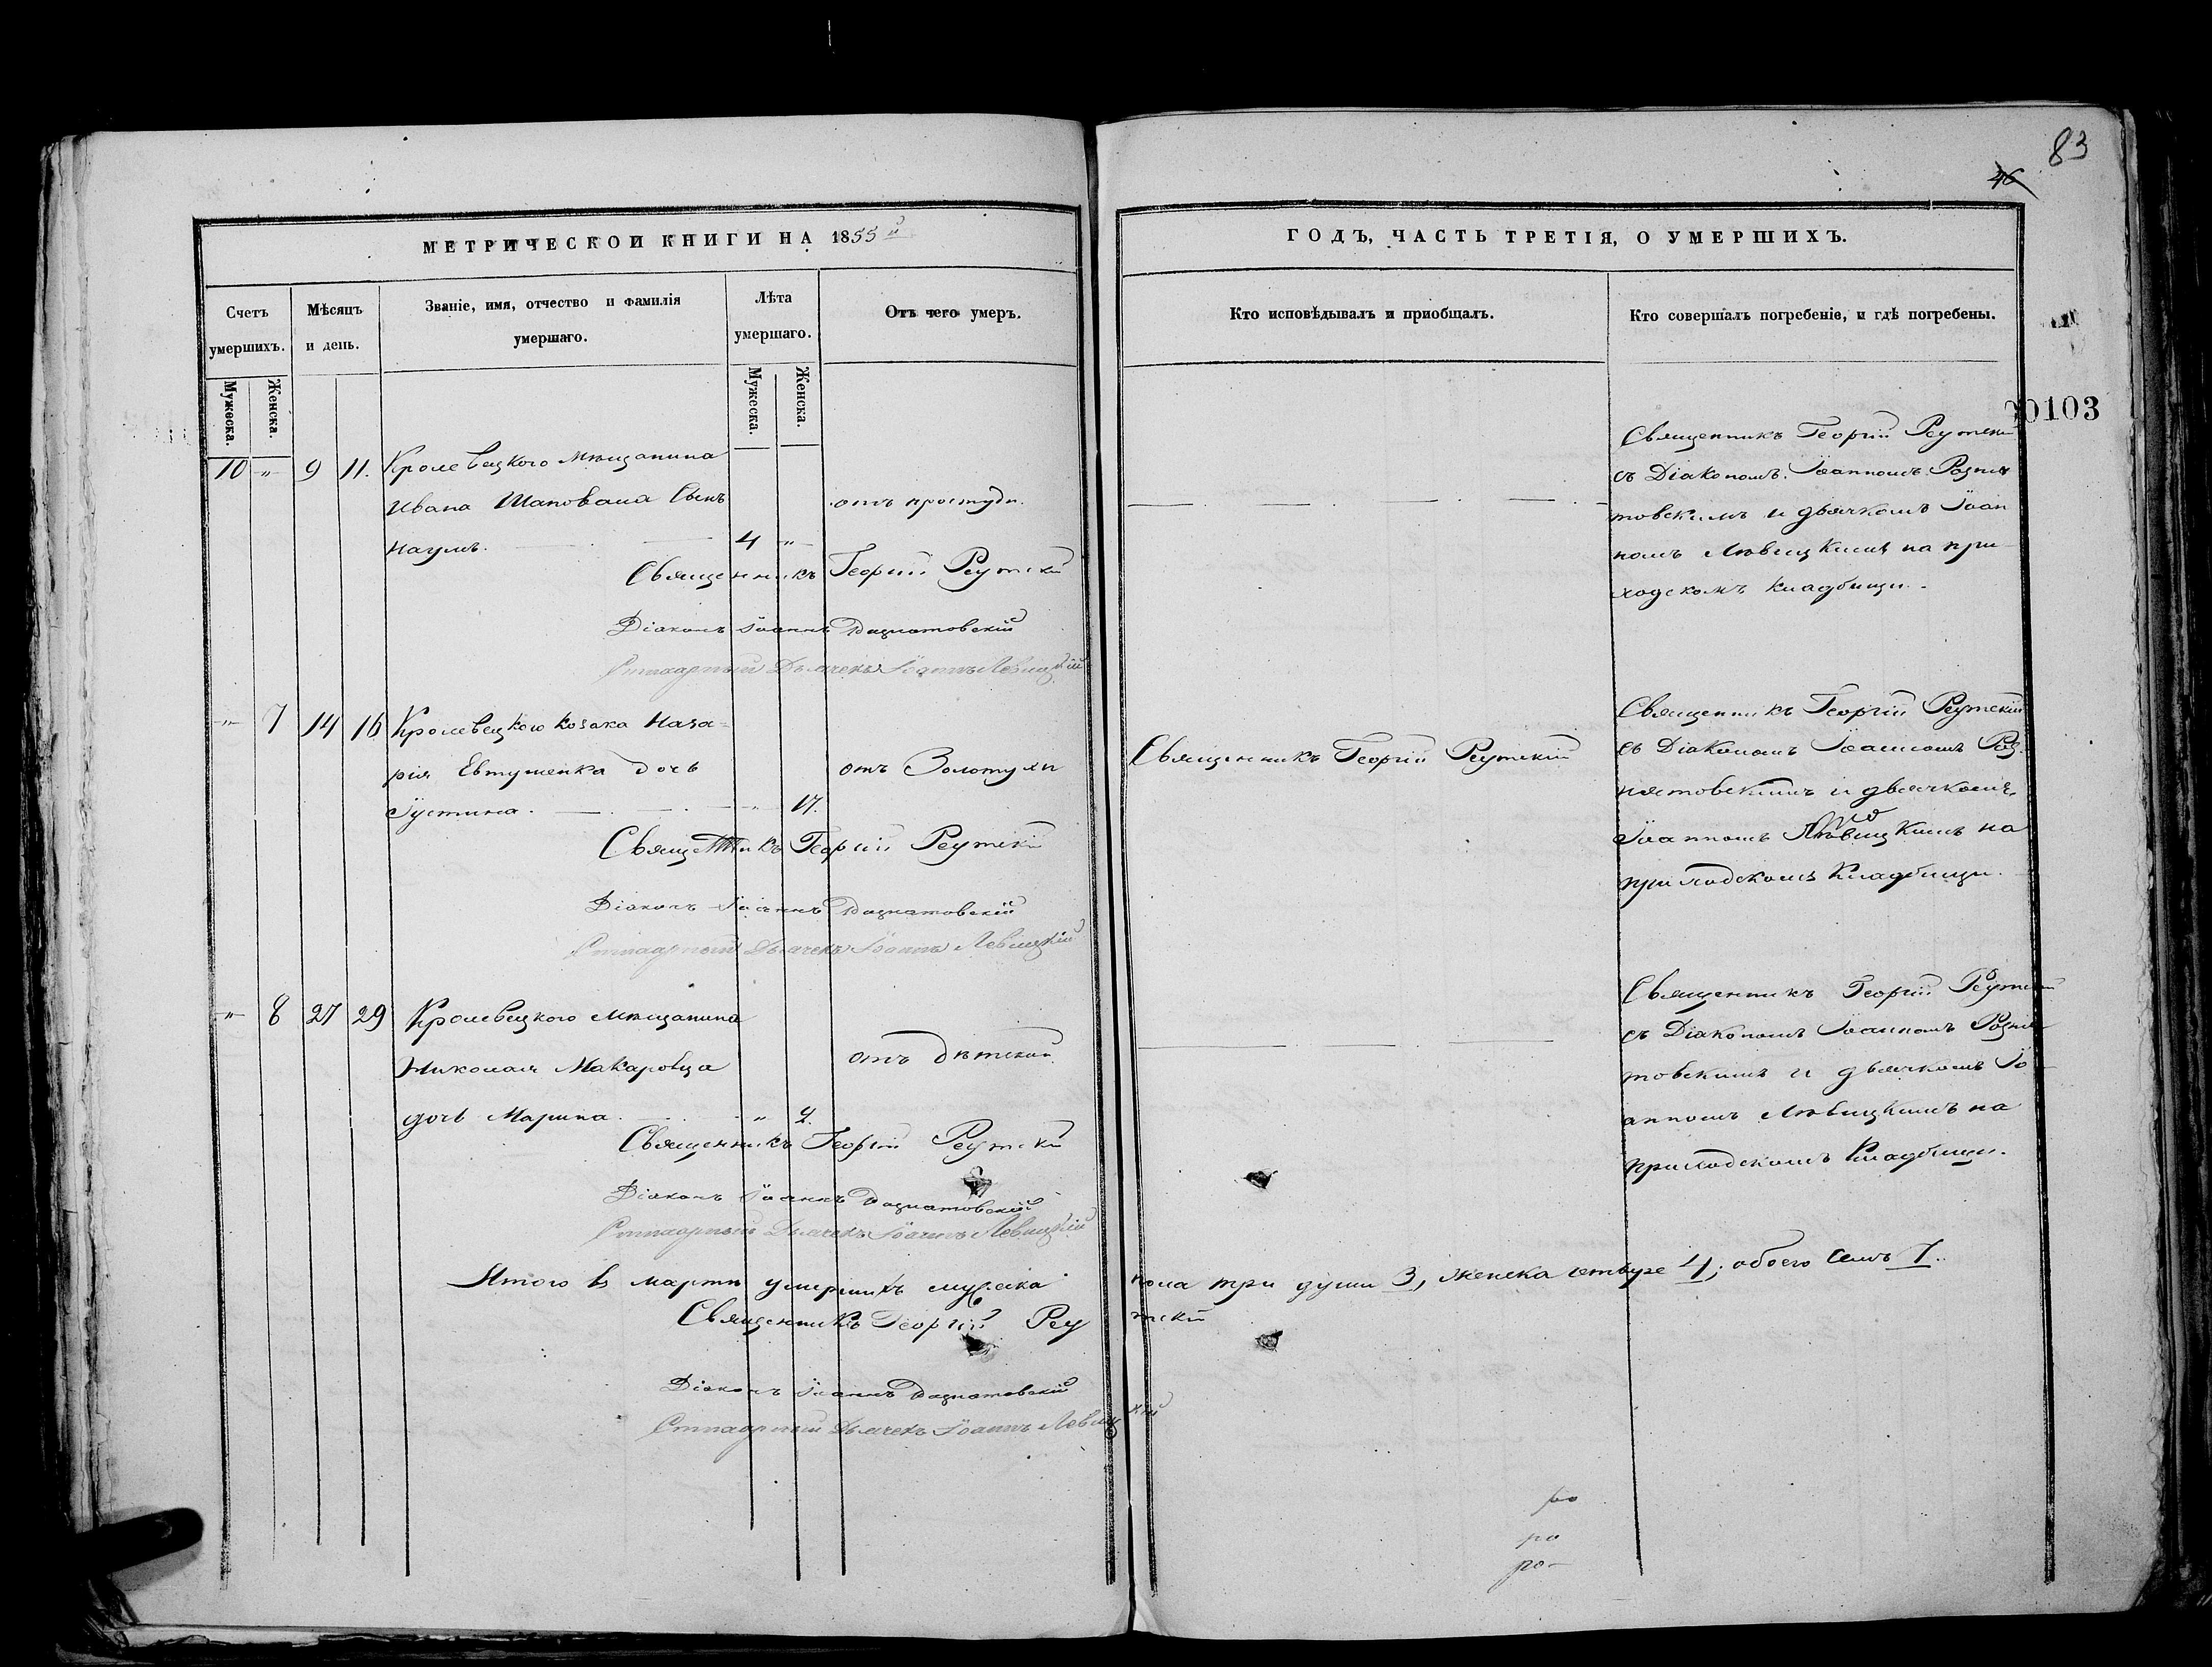 83
46
МЕТРИЧЕСКОЙ КНИГИ НА 1855й
ГОДЪ, ЧАСТЬ ТРЕТІЯ, О УМЕРШИХЪ.
Счетъ умершихъ.
Мѣсяцъ и день.
Званіе, имя, отчество и фамилія умершаго.
Лѣта умершаго.
Отъ чего умеръ.
Кто исповѣдывалъ и приобщалъ.
Кто совершалъ погребеніе, и гдѣ погребены.
Мужеска. Женска.
Мужеска. Женска.
00103
10 „ 9 11. Кролевецкого мѣщанина
Ивана Шаповала Сынъ
Наумъ. 4 „
отъ простуди.
Священникъ Георгій Реутскій
съ Діакономъ Іоанномъ Розня
товскимъ и дьячкомъ Іоан
номъ Лѣвицкимъ на при
ходскомъ кладбищи.
Священникъ Георгій Реутскій
Діаконъ Іоаннъ Рознятовскій
Стихарный Дьячекъ Іоаннъ Левицкій
„ 7 14 16 Кролевецкого козака Наза-
рія Евтушенка дочь
Іустина. „ 17.
отъ Золотухи
Священникъ Георгій Реутскій
Священникъ Георгій Реутскій
съ Діакономъ Іоанномъ Роз-
нятовскимъ и дьячкомъ
Іоанномъ Лѣвицкимъ на
приходскомъ Кладбищи.
Священникъ Георгій Реутскій
Діаконъ Іоаннъ Рознятовскій
Стихарный Дьячекъ Іоаннъ Левицкій
„ 8 27 29 Кролевецкого мѣщанина
Николая Макаровца
дочь Марина. „ 2.
отъ дѣтской
Священникъ Георгій Реутскій
съ Діакономъ Іоанномъ Розня
товскимъ и дьячкомъ Іо
анномъ Лѣвицкимъ на
приходскомъ Кладбищи.
Священникъ Георгій Реутскій
Діаконъ Іоаннъ Рознятовскій
Стихарный Дьячекъ Іоаннъ Левицкій
Итого в мартѣ умершихъ мужеска пола три души 3, женска четыре 4; обоего семь 7.
Священникъ Георгій Реутскій
Діаконъ Іоаннъ Рознятовскій
Стихарный Дьячекъ Іоаннъ Левицкій
ро
ро
ро